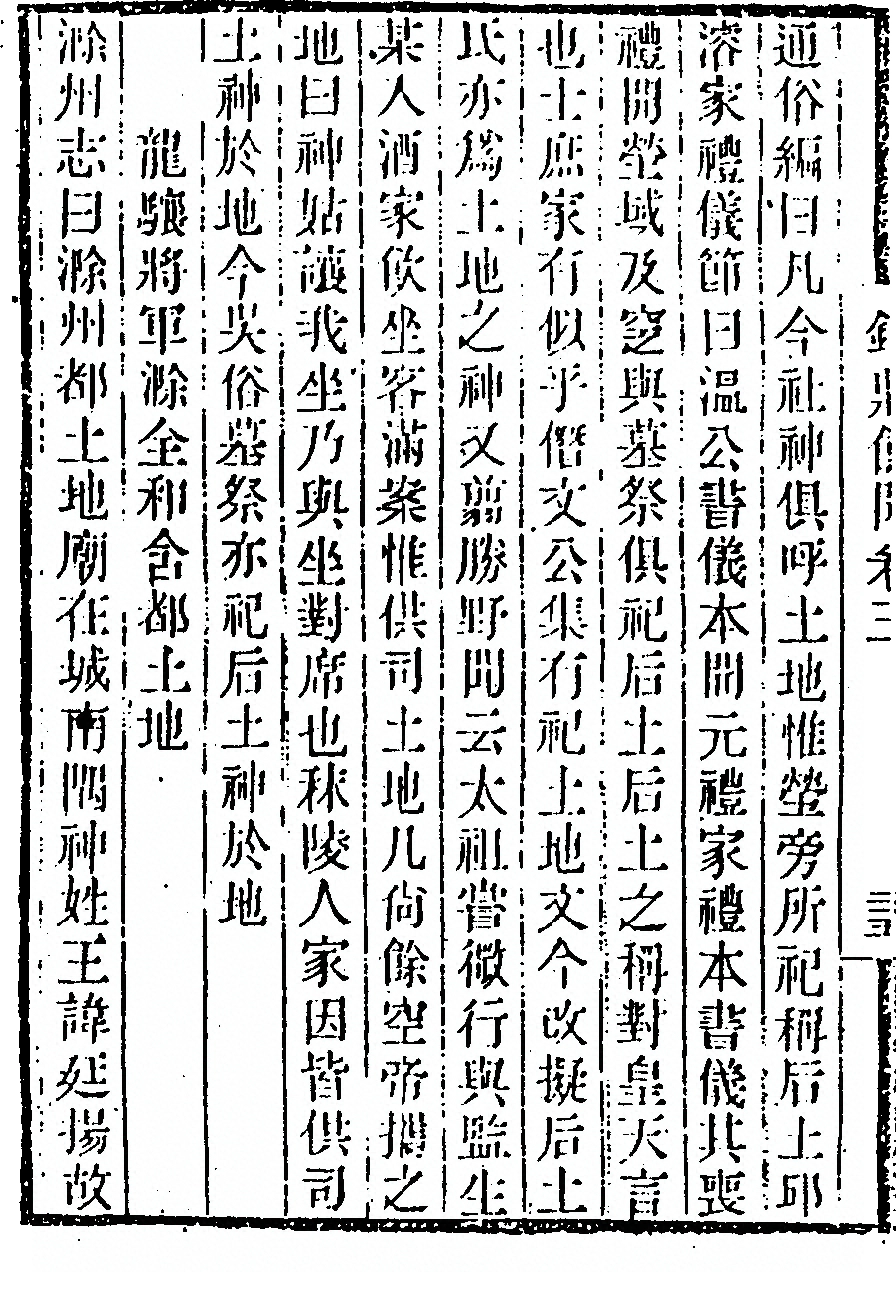 通俗編曰凡今社神俱呼土地惟塋旁所祀稱后土邱
濬家禮儀節曰溫公書儀本開元禮家禮本書儀其喪
禮開塋域及窆與墓祭俱祀后土后土之稱對皇天言
也士庶家有似乎僭文公集有祀土地文今改擬后土
氏亦爲土地之神又翦勝野聞云太祖嘗微行與監生
某人酒家飲坐客滿案惟供司土地几尚餘空帝攜之
地曰神姑讓我坐乃與坐對席也秣陵人家因皆供司
土神於地今吳俗墓祭亦祀后土神於地
龍驤將軍滁全和含都土地
滁州志曰滁州都土地廟在城南隅神姓王諱延揚故
卷三